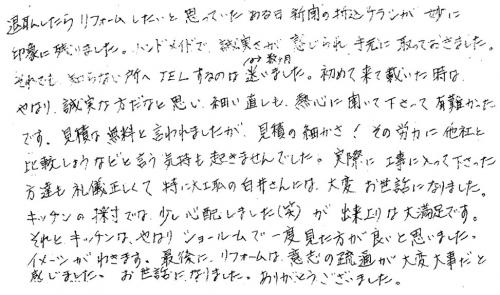 退職したら リフォームしたいと 思っていた ある日 新聞の折込チラシが 妙に
印象に残りました。ハンドメイドで、誠実さが 感じられ 手元に 取っておきました。
それでも 知らない所へ TELするのは 数ヶ月 迷いました。初めて来て載いた時は
やはり、誠実な方だなと思い、細い直しも、熱心に聞いて下さって 有難かった
です。見積は無料と言われましたが、見積の細かさ！その労力に 他社と
比較しようなどと言う気持も起きませんでした。実際に 工事に入って下さった
方達も 礼儀正しくて 特に大工取の白井さんには、大変 お世話になりました。
キッチンの採寸では、少し心配しました(笑) が 出来上りは大満足です。
それと キッチンは、やはり ショールームで一度見た方が良いと思いました。
イメージがわきます。最後に、リフォームは、意志の疎通が 大変大事だと
感じました。 お世話になりました。ありがとうございました。